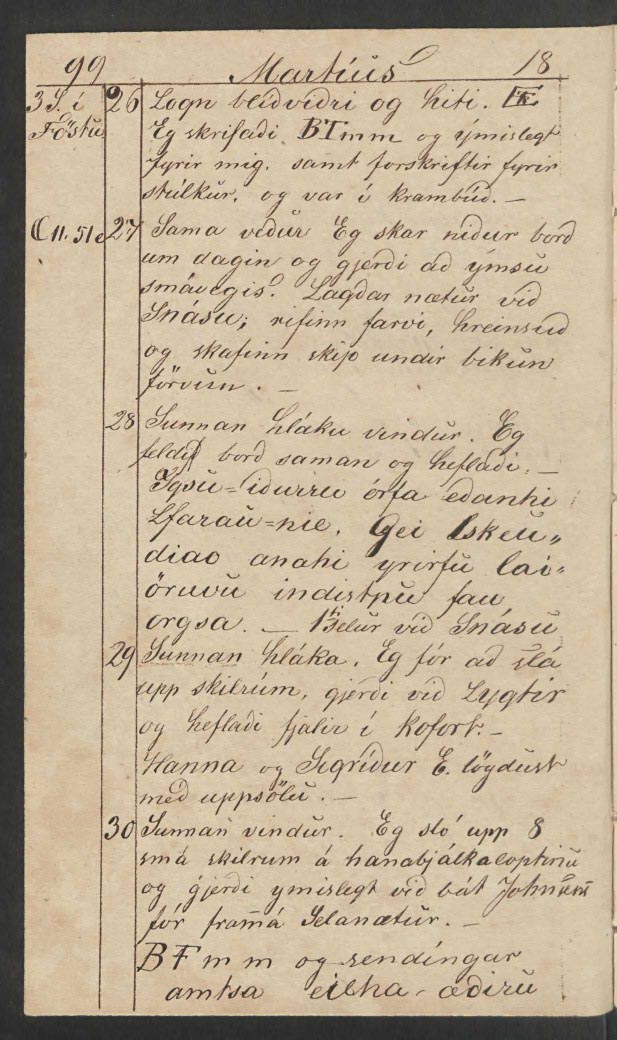 99 Martíus 18
3 S. í 26 Logn blídvidri og hiti.
Föstu Eg skrifadi BTmm og ýmislegt
fyrir mig. samt forskriftir fyrir
stúlkur. og var í krambúd. —
☾ 11. 51 e 27 Sama vedur Eg skar nidur bord
um dagin og gjerdi ad ýmsu
smávegis. Lagdar nætur vid
Snásu; rifinn farvi, hreinsud
og skafinn skip undir bikun
förvun. —
28 Sunnan hláku vindur. Eg
feldi bord saman og hefladi. —
Igsu=idurru órfa edanhi
Lfarau=nie. Gei Iskeu„
diao anahi yrirfu lai=
öruvu indistpu fau
orgsa. — 1 Selur vid Snásu
29 Sunnan hláka. Eg fór ad slá
upp skilrúm, gjerdi vid Lygtir
og hefladi fjalir í Kofort. —
Hanna og Sigrídur E. lögdust
med uppsölu. —
30 Sunnan vindur. Eg sló upp 8
smá skilrum á hanabjálkaloptinu
og gjerdi ymislegt vid bát
fór framá Selanætur. —
BFmm og sendíngar
amtsa eilha - ædiru